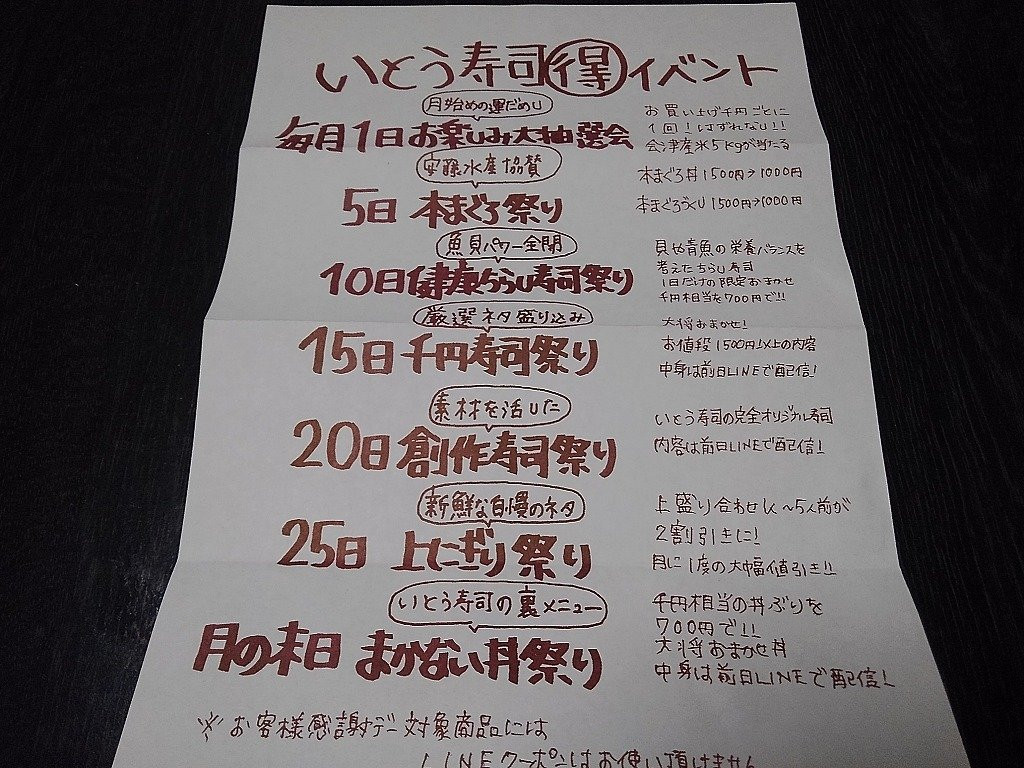 いとう寿司 得 イベント
月始めの運だめし
毎月1日 お楽しみ大抽選会
お買い上げ千円ごとに
1回!はずれなし!!
会津産米5kgが当たる
安藤水産協賛
5日 本まぐろ祭り
本まぐろ丼 1500円→1000円
本まぐろづくし 1500円→1000円
魚貝パワー全開
10日 健康ちらし寿司祭り
貝や青魚の栄養バランスを
考えたちらし寿司
1日だけの限定おまかせ
千円相当を700円で!!
厳選ネタ盛り込み
15日 千円寿司祭り
大将おまかせ!
お値段1500円以上の内容
中身は前日LINEで配信!
素材を活した
20日 創作寿司祭り
いとう寿司の完全オリジナル寿司
内容は前日LINEで配信!
新鮮な自慢のネタ
25日 上にぎり祭り
上盛り合わせ1人~5人前が
2割引きに!
月に1度の大幅値引き!!
いとう寿司の裏メニュー
月の末日 まかない丼祭り
千円相当の丼ぶりを
700円で!!
大将おまかせ丼
中身は前日LINEで配信!
※お客様感謝デー対象商品には
LINEクーポンはお使い頂けません